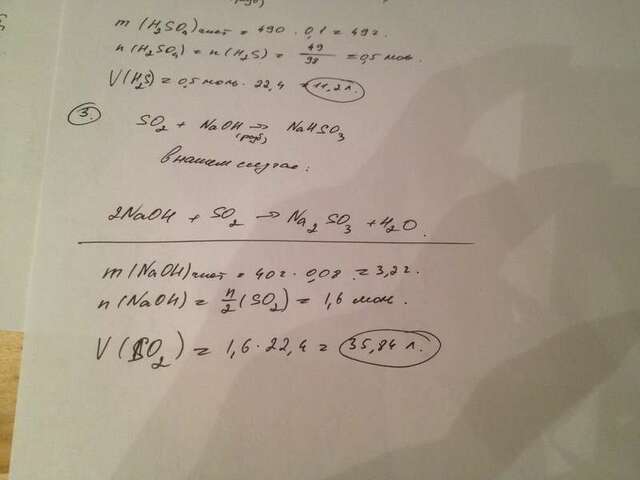 m(H₂SO₄)чист = 490 · 0,1 = 49г.
n(H₂SO₄) = n(H₂S) = 49/98 = 0,5 мол.
V(H₂S) = 0,5 моль · 22,4 = 11,2 л.
3.
SO₂ + NaOH → NaHSO₃
в нашем случае:
2NaOH + SO₂ → Na₂SO₃ + H₂O.
m(NaOH)чист = 40г · 0,08 = 3,2г.
n(NaOH) = n/2 (SO₂) = 1,6 мол.
V(SO₂) = 1,6 · 22,4 = 35,84 л.